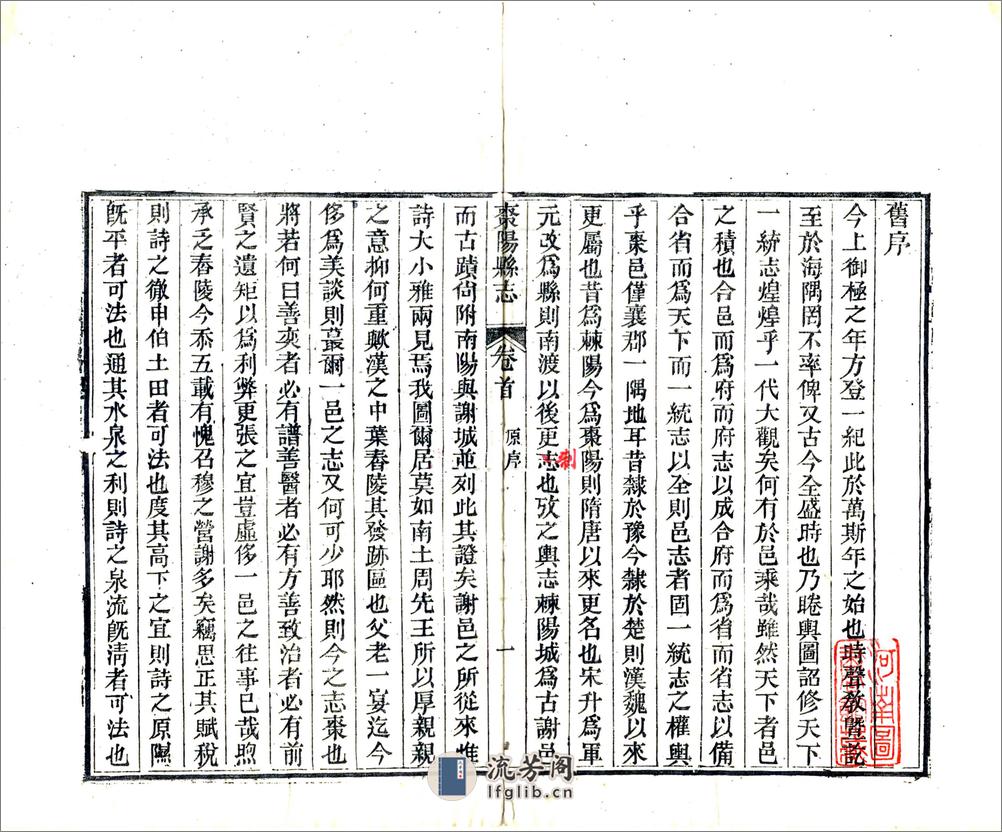 舊序
今上御極之年方登一紀此於萬斯年之始也時聲教暨訖
至於海隅罔不率俾又古今全盛時也乃睠輿圖詔修天下
一統志煌煌乎一代大觀矣何有於邑乘哉雖然天下者邑
之積也合邑而爲府而府志以成合府而爲省而省志以備
合省而爲天下而一統志以全則邑志者固一統志之權輿
乎棗邑僅襄郡一隅地耳昔隸於豫今隸於楚則漢魏以來
更屬也昔爲棘陽今爲棗陽則隋唐以來更名也宋升爲軍
元改爲縣則南渡以後更志也攷之輿志棘陽城爲古謝邑
制
棗陽縣志 卷首 原序 一
而古蹟尙附南陽與謝城並列此其證矣謝邑之所從來惟
詩大小雅兩見焉我圖爾居莫如南土周先王所以厚親親
之意抑何重歟漢之中葉舂陵其發跡區也父老一宴迄今
侈爲美談則蕞爾一邑之志又何可少耶然則今之志棗也
將若何曰善奕者必有譜善醫者必有方善致治者必有前
賢之遺矩以爲利弊更張之宜豈虛侈一邑之往事已哉煦
承乏舂陵今忝五載有愧召穆之營謝多矣竊思正其賦稅
則詩之徹申伯土田者可法也度其高下之宜則詩之原隰
旣平者可法也通其水泉之利則詩之泉流旣淸者可法也
河南圖
流芳阁
lfglib.cn